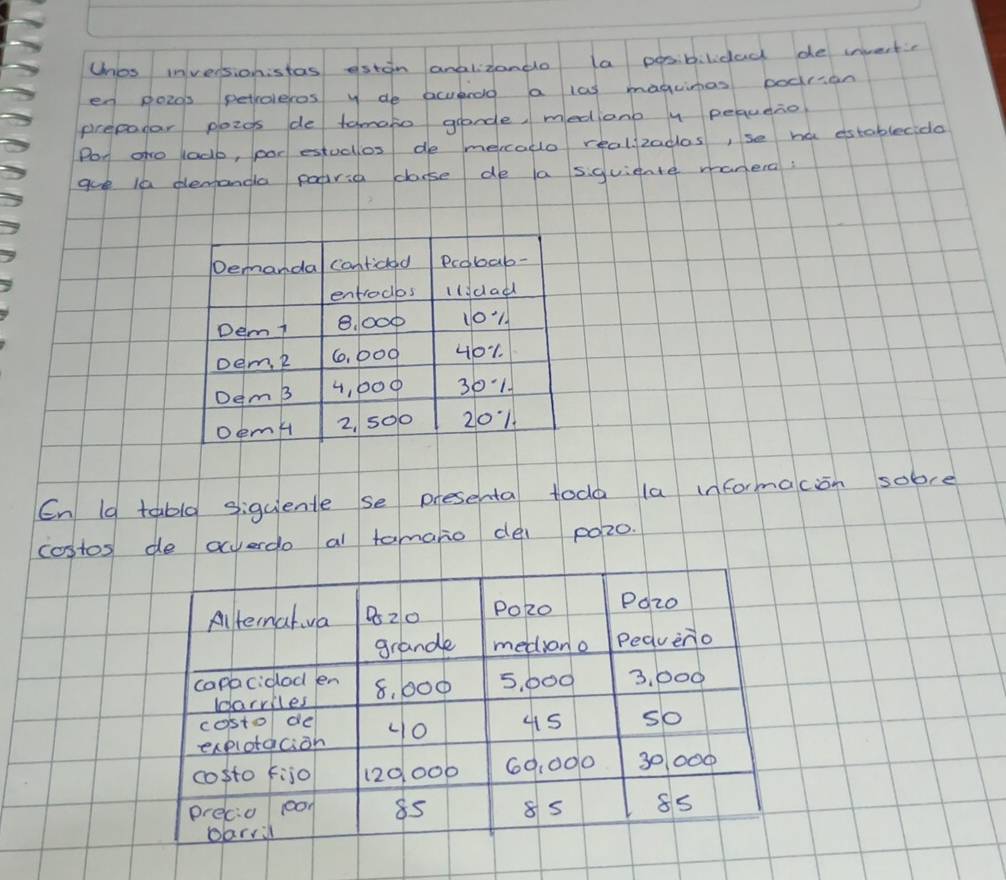 Unos inversionistas están analizando la posibilidad de invertir
en pozos petroleros y de acuerdo a las maquinas podrían
preparar pozos de tamaño grande, mediano y pequeño
Por otro lado, por estudios de mercado realizados, se ha establecido
que la demanda podría darse de la siguiente manera:
Demanda Cantidad Probab-
entrados ilidad
Dem 1 8,000 10%
Dem. 2 6,000 40%.
Dem 3 4,000 30%
Dem 4 2,500 20%
En la tabla siguiente se presenta toda la información sobre
costos de acuerdo al tamaño del pozo.
Alternativa Pozo Pozo Pozo
grande mediano Pequeño
capacidad en 8,000 5,000 3,000
barriles
costo de 40 45 50
explotación
costo fijo 120,000 60,000 30,000
precio por 85 85 85
barril